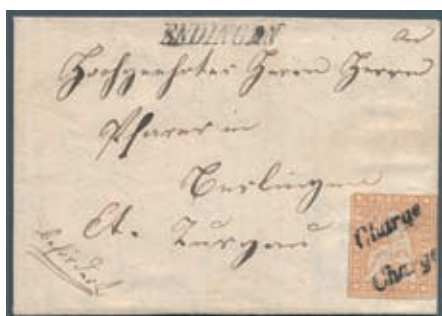 ENDINGEN
An
Hochgeehrter Herrn Herrn
Pfarer in
Berlingen
Ct. Turgau
Charge
Charge